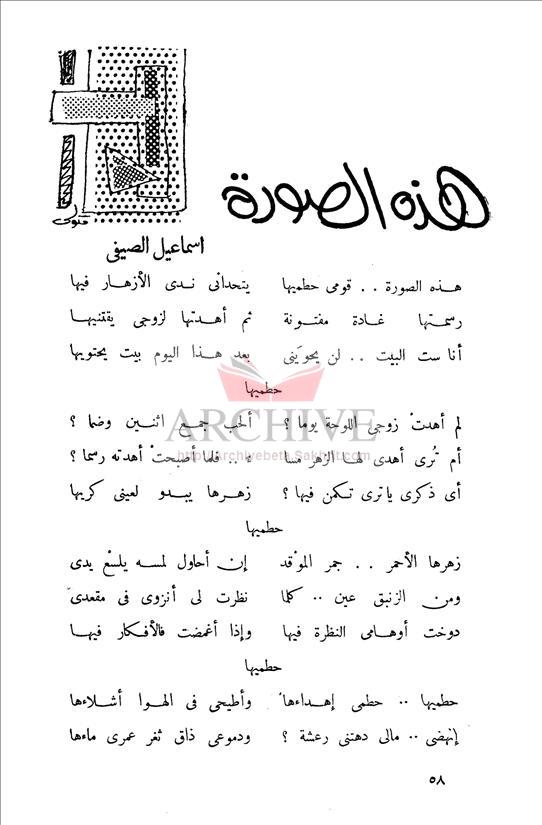 هذه الصورة
فنوى
اسماعيل الصيفى
هذه الصورة . . قومى حطميها يتحدانى ندى الأزهار فيها
رسمتها غادة مفتونة ثم أهدتها لزوجى يقتنيها
أنا ست البيت .. لن يحوينى بعد هذا اليوم بيت يحتويها
حطميها
لم أهدتْ زوجى اللوحة يوما ؟ ألحب جمع اثنين وضما ؟
أم تُرى أهدى لها الزهر مسا ء .. فلما أصبحتْ أهدته رسما ؟
أى ذكرى يا ترى تكمن فيها ؟ زهرها يبدو لعينى كريها
حطميها
زهرها الأحمر . . جمر الموْقد إن أحاول لمسه يلسعْ يدى
ومن الزنبق عين .. كلما نظرت لى أنزوى فى مقعدى
دوخت أوهامى النظرة فيها وإذا أغمضت فالأفكار فيها
حطميها
حطميها .. حطمى إهداءها وأطيحى فى الهوا أشلاءها
إنهضى .. مالى دهتنى رعشة ؟ ودموعى ذاق ثغر عمرى ماءها
ARCHIVE
http://Archivebeta.Sakhrit.com
٥٨